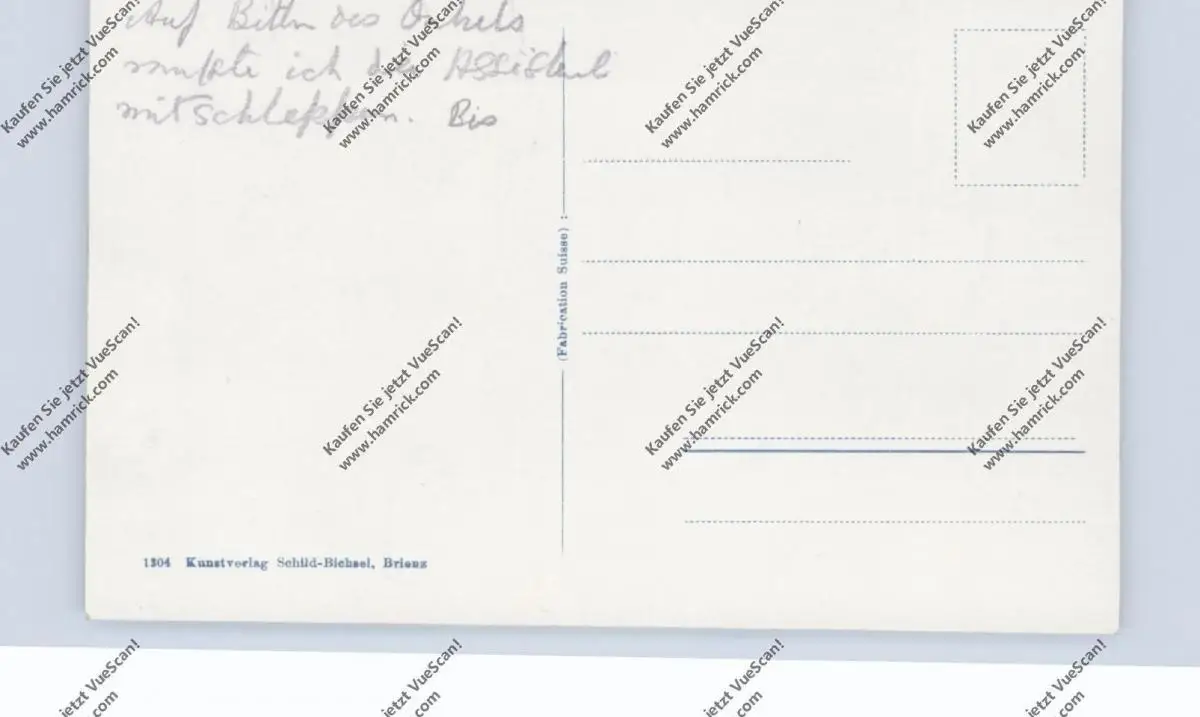 Auf Bitten des Onkels
mußte ich den Assistent
mitschleppen. Bis
(Fabrication Suisse) :
1304 Kunstverlag Schild-Bichsel, Brienz
Kaufen Sie jetzt VueScan!
www.hamrick.com
Kaufen Sie jetzt VueScan!
www.hamrick.com
Kaufen Sie jetzt VueScan!
www.hamrick.com
Kaufen Sie jetzt VueScan!
www.hamrick.com
Kaufen Sie jetzt VueScan!
www.hamrick.com
Kaufen Sie jetzt VueScan!
www.hamrick.com
Kaufen Sie jetzt VueScan!
www.hamrick.com
Kaufen Sie jetzt VueScan!
www.hamrick.com
jetzt VueScan!
.com
jetzt VueScan!
.com
jetzt VueScan!
.com
jetzt VueScan!
.com